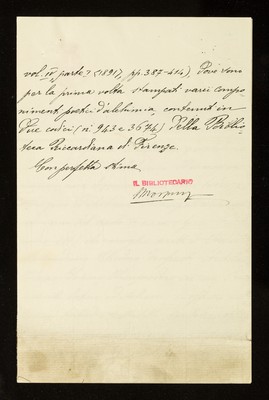 vol. IV, parte 2 (1891), pp. 387-414), dove sono
per la prima volta stampati varii compo-
nimenti poetici d'alchimia, contenuti in
due codici (n.i 943 e 3674) della Biblio-
teca Riccardiana di Firenze.
Con perfetta stima
IL BIBLIOTECARIO